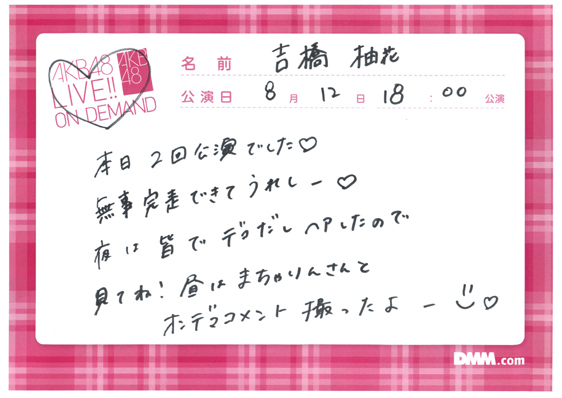 AKB48
LIVE!!
ON DEMAND
AKB
48
名前 吉橋 柚花
公演日 8月 12日 18:00 公演
本日 2回公演でした♡
無事完走できてうれしー♡
夜は 皆で デコだしヘアしたので
見てね! 昼はまちゃりんさんと
オンデマコメント 撮ったよー
DMM.com